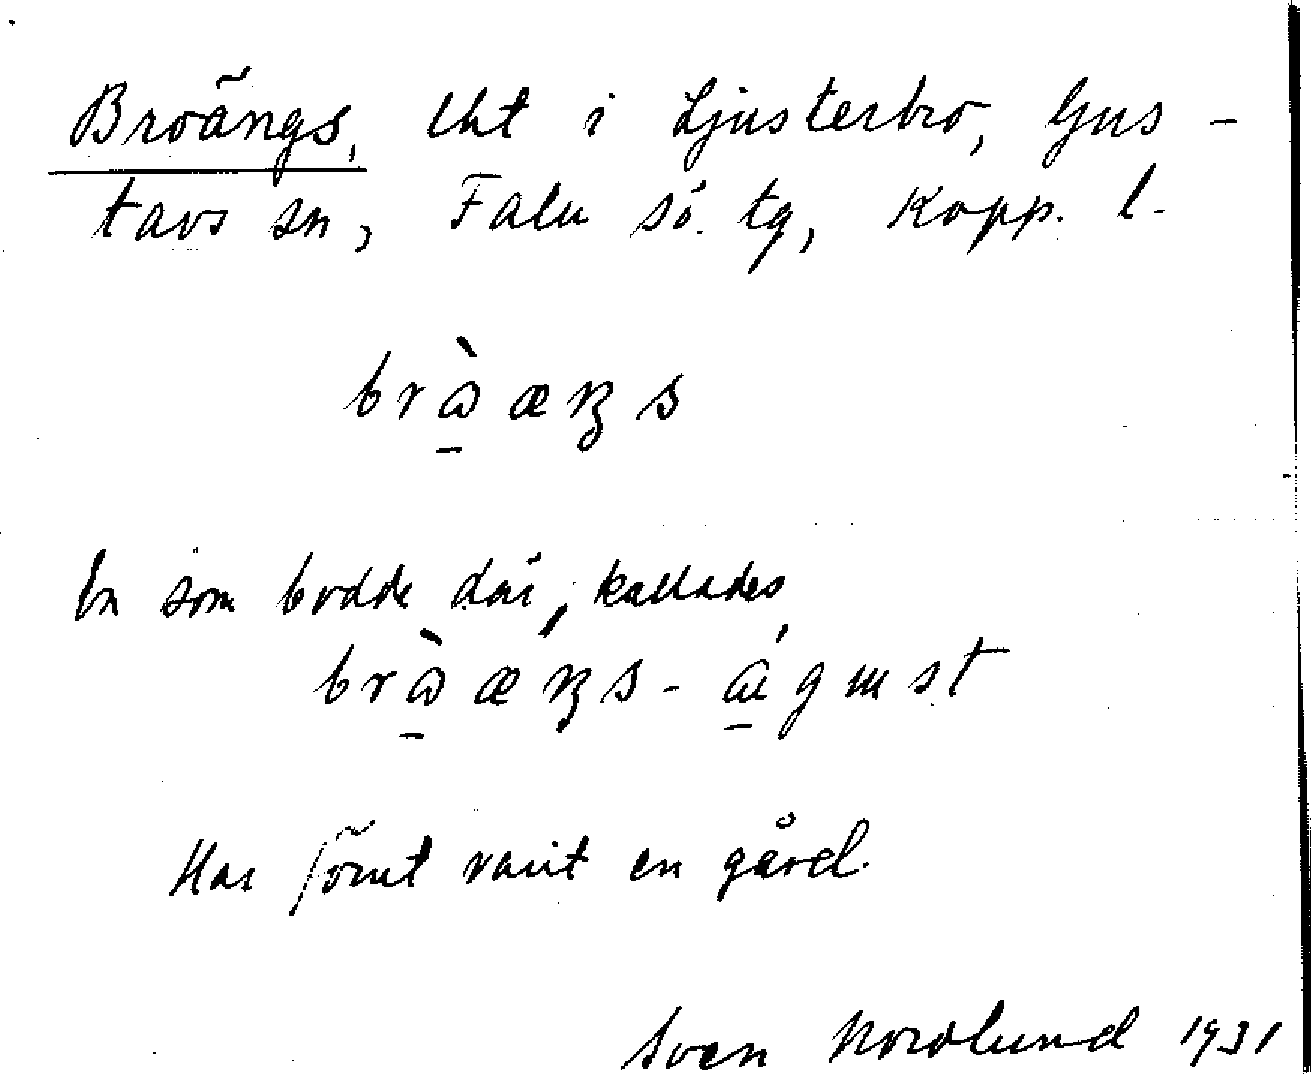 Broängs, lht i Ljusterbro, Gus-
tavs sn, Falu sö. tg, Kopp. l.
brɷ̀æŋs
En som bodde där, kallades
brɷ̀æŋs-
Har förut varit en gård.
Sven Nordlund 1931